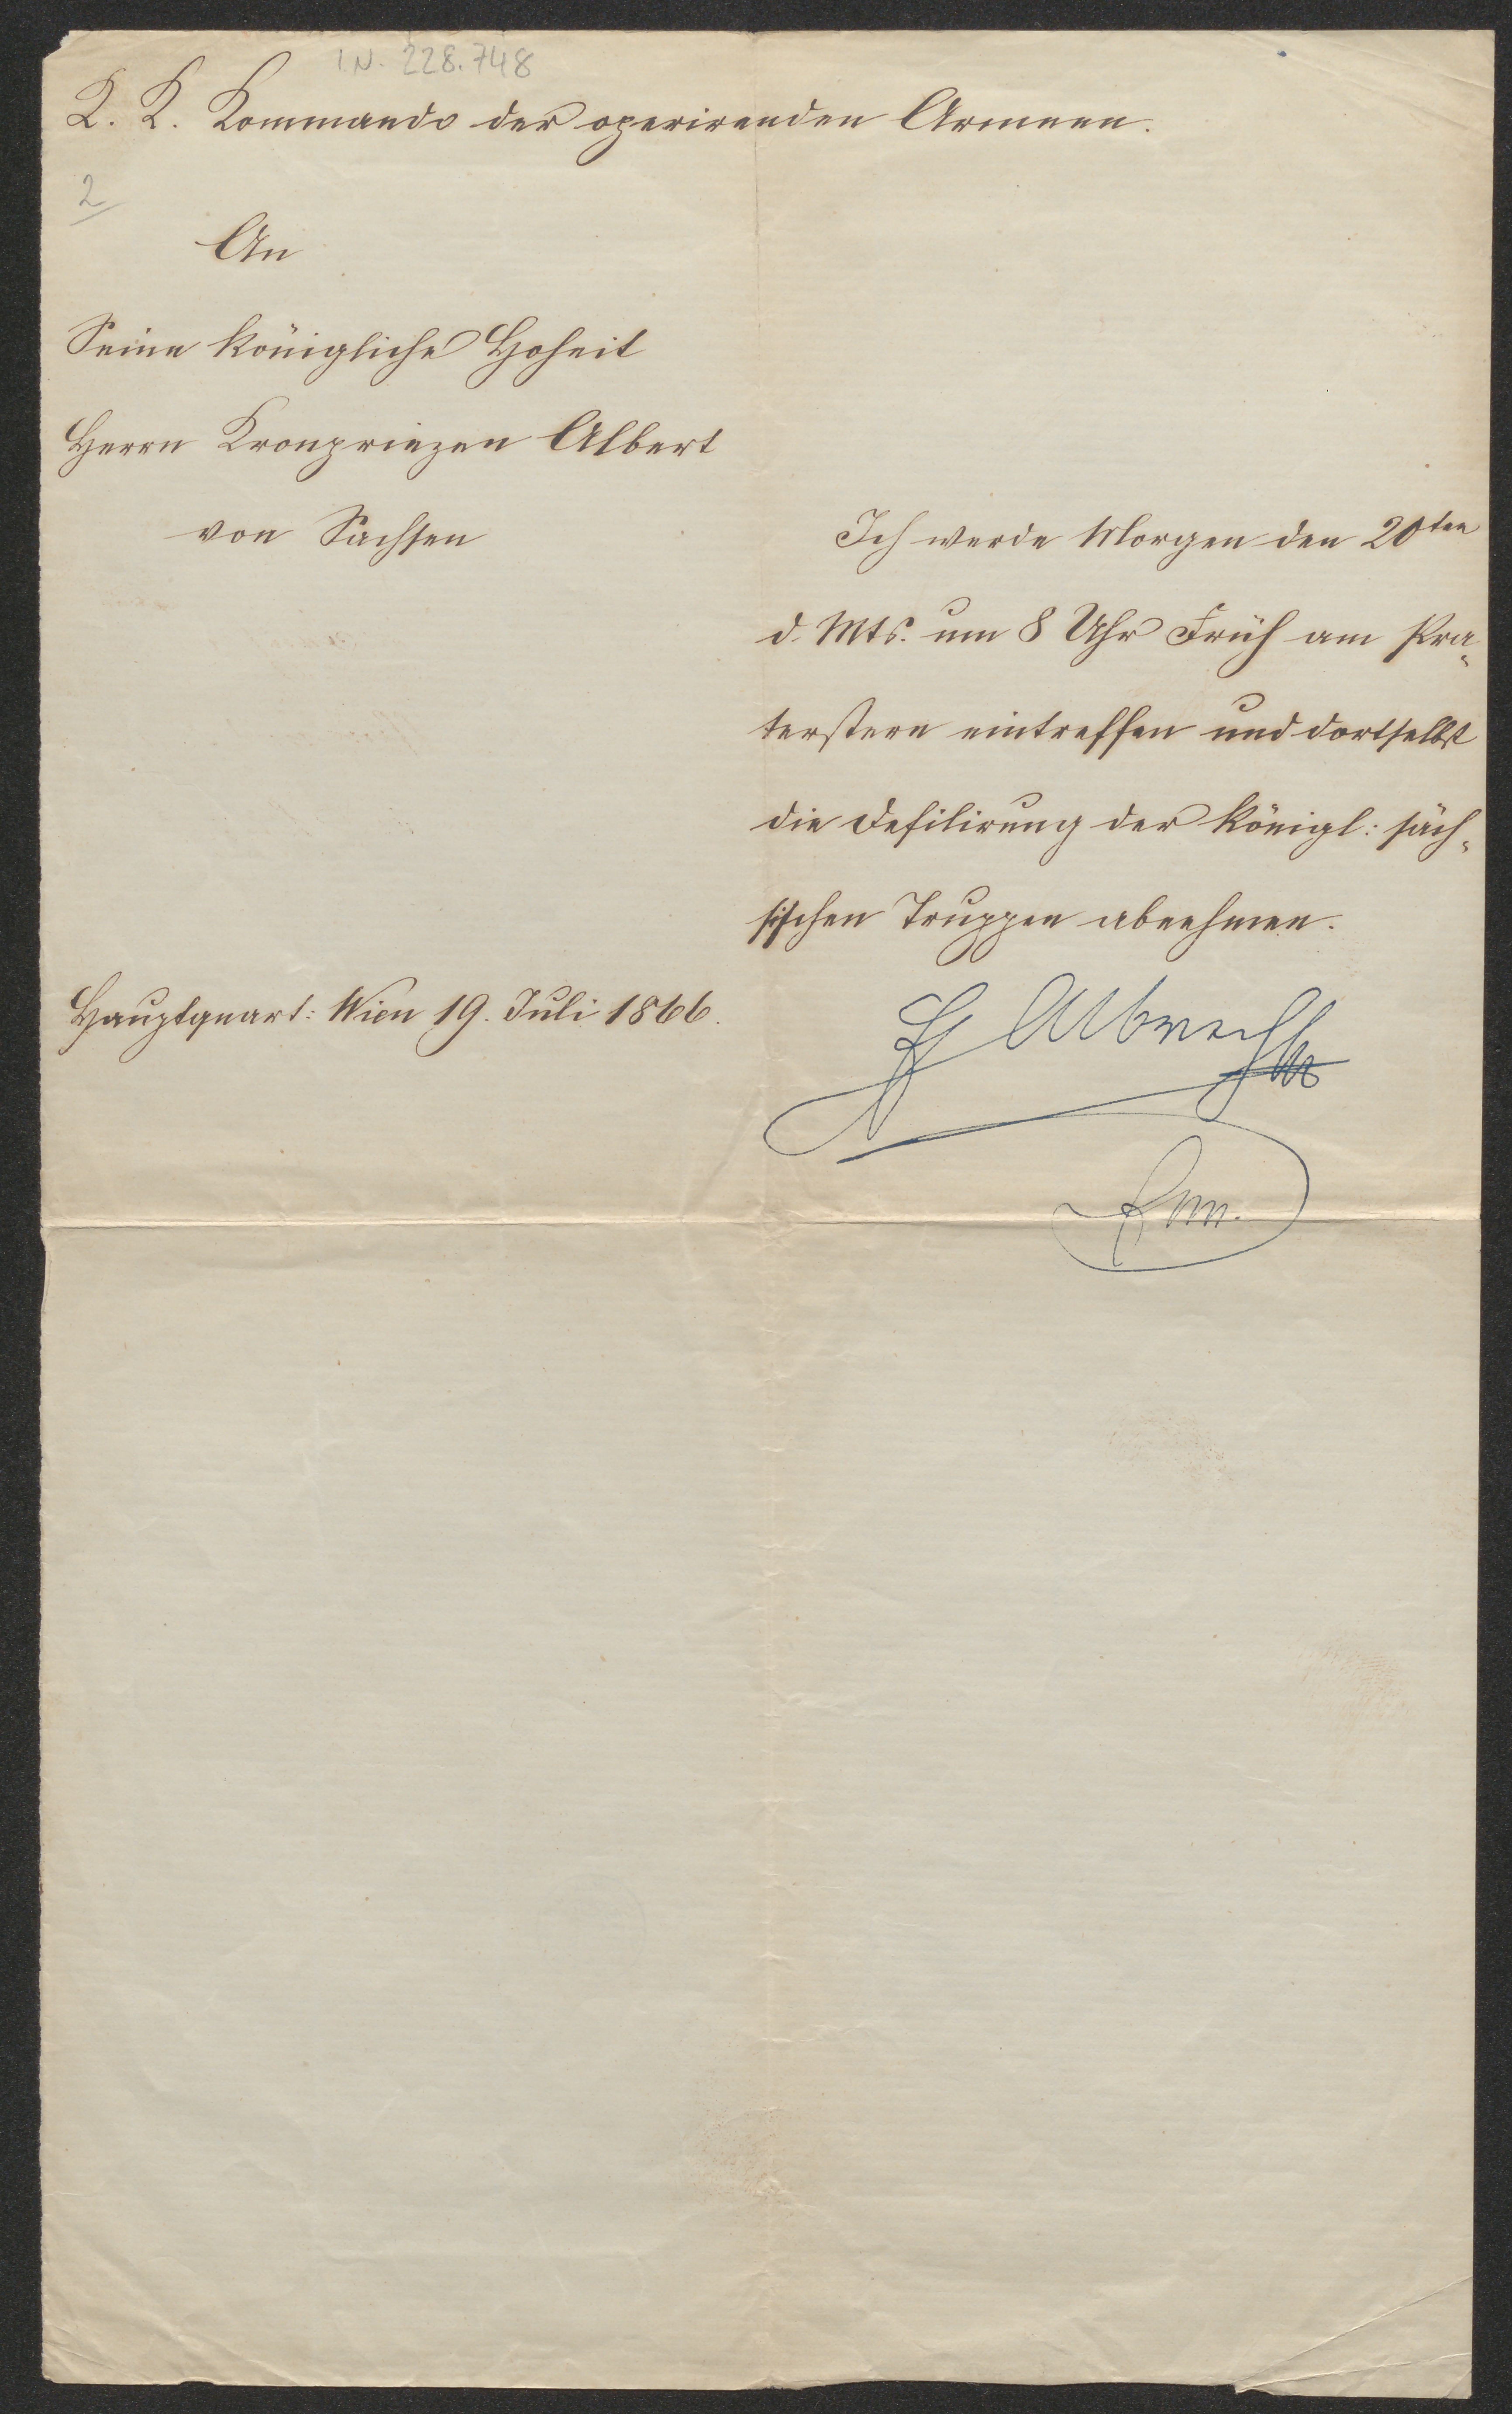 I.N. 228.748
K. K. Kommando der operirenden Armeen.
2
An
Seine königliche Hoheit
Herrn Kronprinzen Albert
von Sachsen
Ich werde Morgen den 20ten
d. Mts. um 8 Uhr Früh am Pra-
terstern eintreffen und dortselbst
die Defilirung der königl: säch-
sischen Truppen abnehmen.
Hauptquart: Wien 19. Juli 1866.
EH Albrecht
FM.